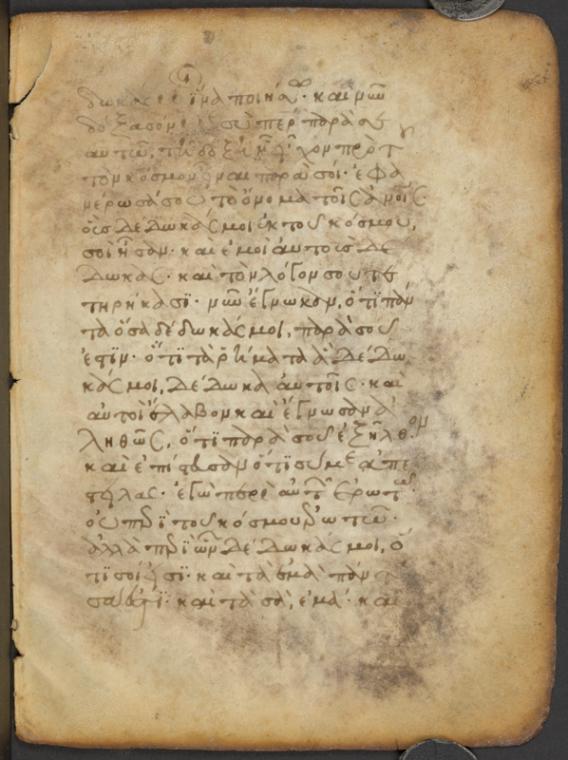 δωκας μοι ἵνα ποιήσω· καὶ νῦν
δόξασόν με σὺ περ παρὰ σε
αυτῶ, τῆ δόξη ἧ εἶχον πρὸ τ
τὸν κόσμον εἶναι παρὰ σοί· ἐφα
νέρωσά σου τὸ ὄνομα τοῖς ἀνοις
οὓς δέδωκάς μοι ἐκ τοῦ κόσμου,
σοὶ ἦσαν· καὶ ἐμοὶ αὐτοὺς δέ
δωκας· καὶ τὸν λόγον σου τε
τηρήκασϊ· νῦν ἔγνωκαν, ὅτϊ πάν
τα ὅσα δέδωκάς μοι, παρὰ σοῦ
ἐστϊν· ὅτϊ τὰ ῥήματα ἃ δέδω
κάς μοι, δέδωκα αὐτοῖς· καὶ
αυτοὶ ἔλαβον καὶ ἔγνωσαν ἀ
ληθῶς, ὅτϊ παρὰ σοῦ ἐξῆλθον
καὶ ἐπίστευσαν ὅτϊ σύ με ἀπέ
στειλας· ἐγὼ περὶ αὐτῶν ἐρωτῶ·
οὐ περὶ τοῦ κόσμου ἐρωτῶ·
ἀλλὰ περὶ ὧν δέδωκάς μοι, ὅ
τϊ σοί εἰσϊ· καὶ τὰ ἐμὰ πάντα
σά ἐστϊ· καὶ τὰ σὰ, ἐμά· καὶ